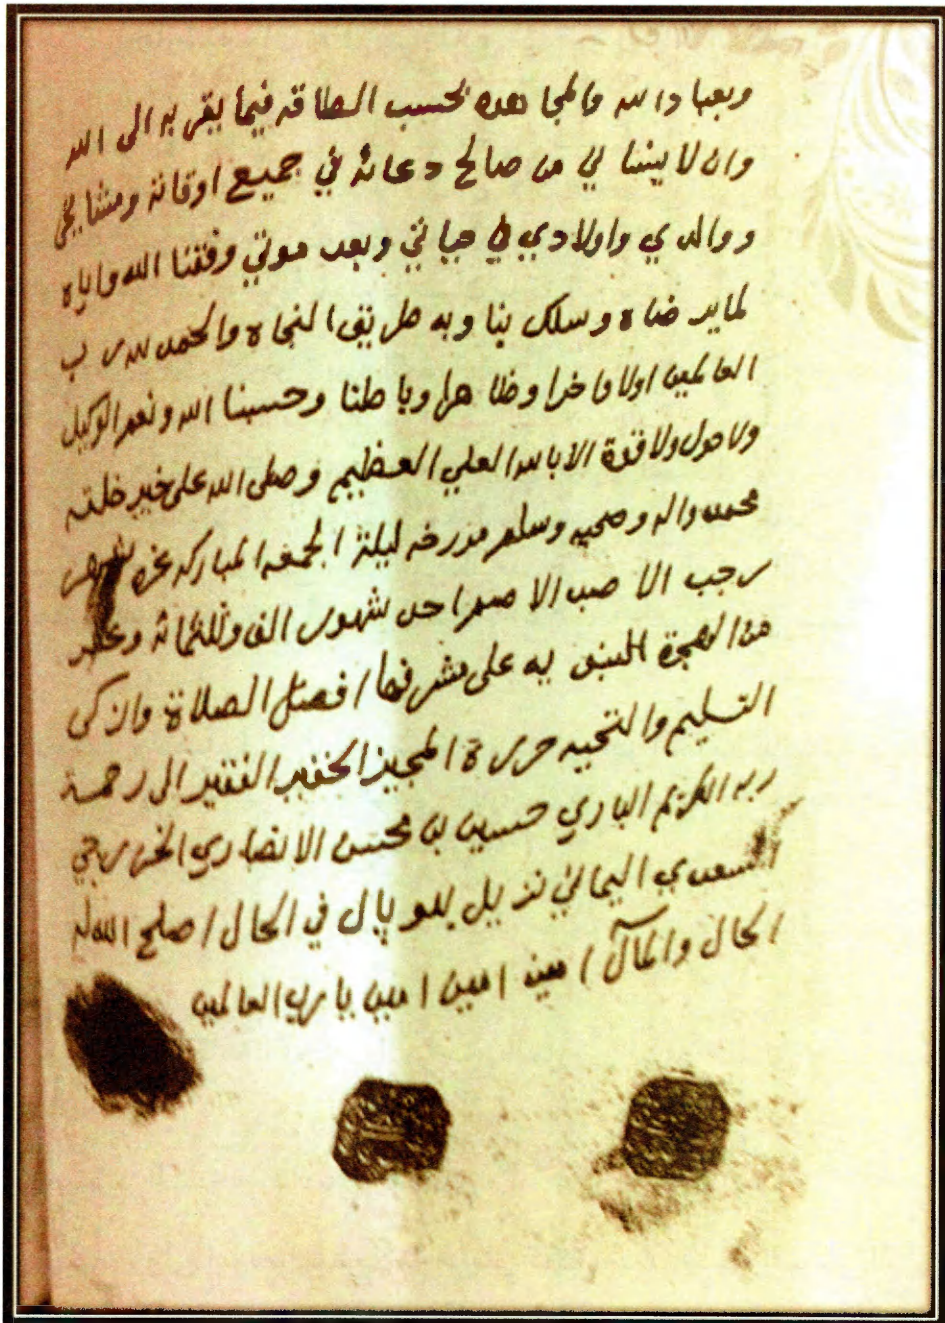 وبعباد الله والمجاهده بحسب الطاقه فيما يقربه الى الله
وان لا ينساني من صالح دعائه في جميع اوقاته ومشايخي
ووالدي واولادي في حياتي وبعد موتي وفقنا الله واياه
لما يرضاه وسلك بنا وبه طريق النجاه والحمد لله رب
العالمين اولا واخرا وظاهرا وباطنا وحسبنا الله ونعم الوكيل
ولا حول ولا قوة الا بالله العلي العظيم وصلى الله على خير خلقه
محمد واله وصحبه وسلم مورخه ليلة الجمعه المباركه غره شهر
رجب الاصب الاصم احد شهور الف وثلثمائه وعشر
من الهجرة النبويه على مشرفها افضل الصلاة وازكى
التسليم والتحيه حرره المجيز الحقير الفقير الى رحمة
ربه الكريم الباري حسين بن محسن الانصاري الخزرجي
السعدي اليماني نزيل بهوپال في الحال اصلح الله له
الحال والمآل امين امين امين يا رب العالمين